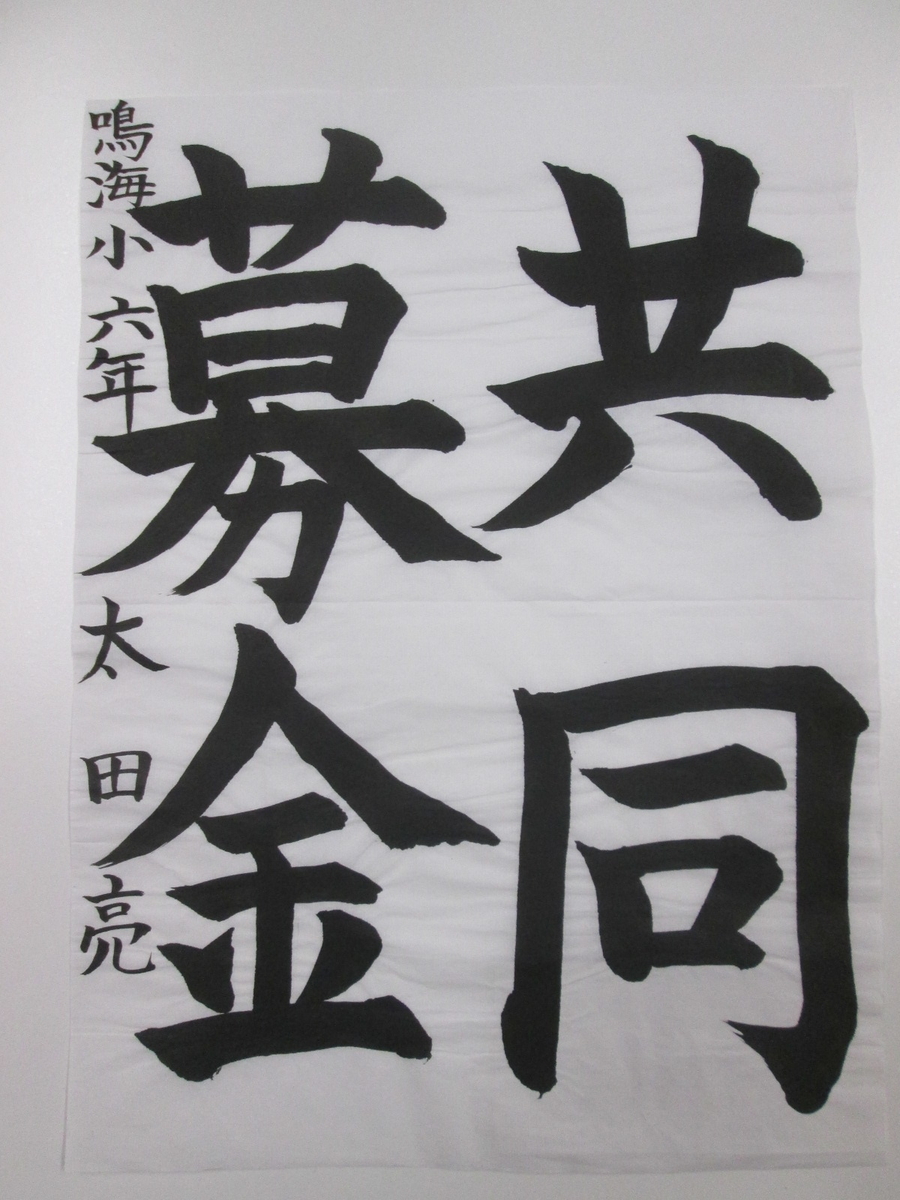 共同
募金
鳴海小 六年 太田亮